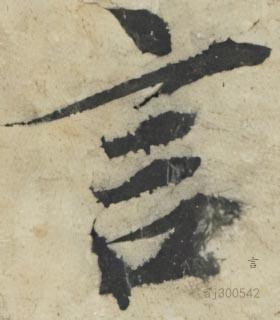 言
言
aj300542